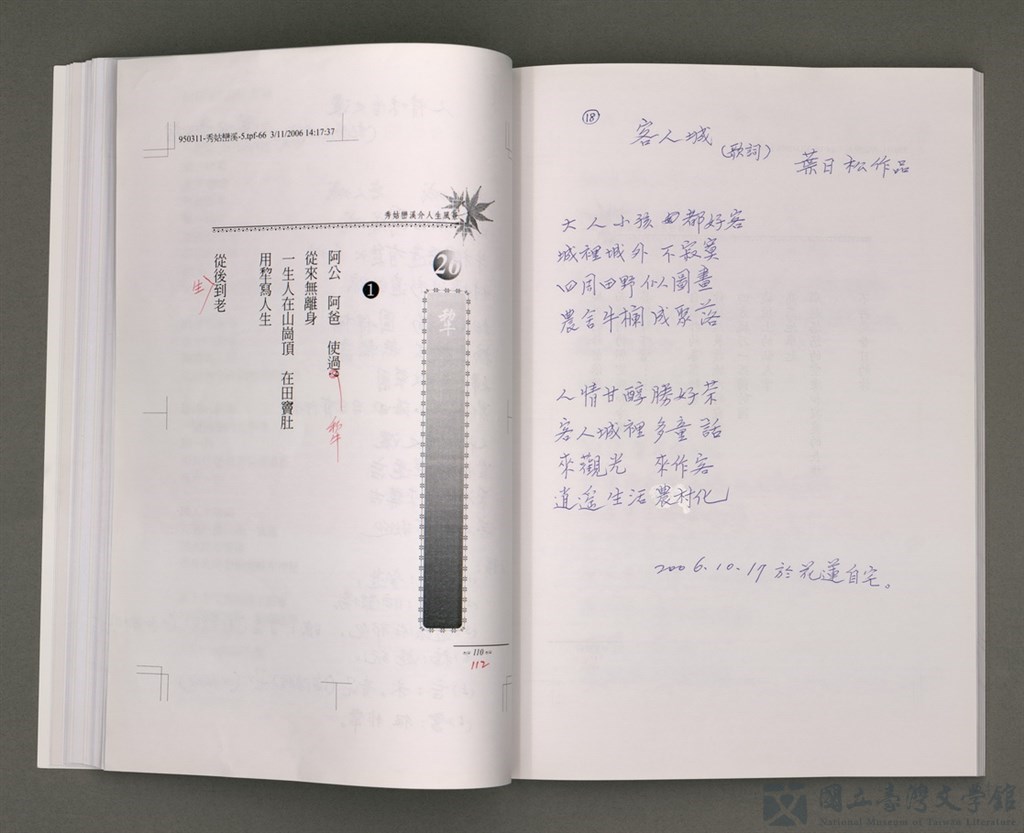 950311-秀姑巒溪-5.tpf-66 3/11/2006 14:17:37
秀姑巒溪介人生風
26
犂
❶
阿公 阿爸 使過
犂
從來無離身
一生人在山崗頂 在田竇肚
用犂寫人生
從後到老
生
110
112
⑱
客人城
(歌詞)
葉日松作品
大人小孩都好客
城裡城外不寂寞
四周田野似圖畫
農舍牛欄成聚落
人情甘醇勝好茶
客人城裡多童話
來觀光 來作客
逍遙生活農村化
2006.10.17於花蓮自宅。
國立臺灣文學館
National Museum of Taiwan Literature